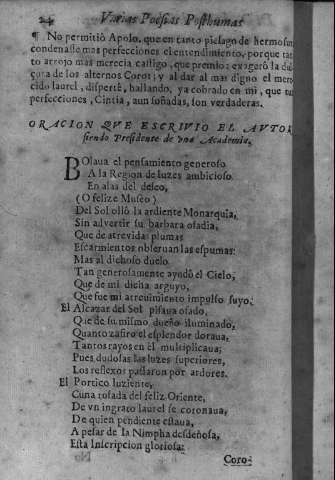 24 Varias Poesias Posthumas
¶ No permitiò Apolo, que en tanto pielago de hermosura
condenasse mas perfecciones el entendimiento, porque tan-
to arrojo mas merecia castigo, que premio: exagerò la dul-
çura de los alternos Coros; y al dar al mas digno el mere-
cido laurel, dispertè, hallando, ya cobrado en mi, que tus
perfecciones, Cintia, aun soñadas, son verdaderas.
ORACION QVE ESCRIVIO EL AVTOR
siendo Presidente de vna Academia.
BOlaua el pensamiento generoso
A la Region de luzes ambicioso.
En alas del deseo,
(O felize Museo)
Del Sol ollò la ardiente Monarquia,
Sin advertir su barbara osadia,
Que de atrevidas plumas
Escarmientos obseruan las espumas:
Mas al dichoso duelo
Tan generosamente ayudò el Cielo,
Que de mi dicha arguyo,
Que fue mi atreuimiento impulso suyo.
El Alcazar del Sol pisaua osado,
Que de su mismo dueño iluminado,
Quanto zafiro el esplendor doraua,
Tantos rayos en el multiplicaua;
Pues dudosas las luzes superiores,
Los reflexos passaron por ardores.
El Portico luziente,
Cuna rosada del feliz Oriente,
De vn ingrato laurel se coronaua,
De quien pendiente estaua,
A pesar de la Nimpha desdeñosa,
Esta Inscripcion gloriosa:
Coro-